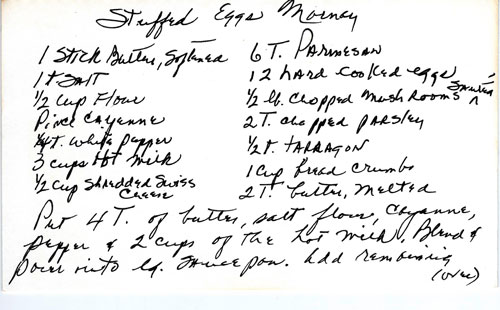 Stuffed Eggs Mornay
1 Stick Butter, Softened
1 t Salt
1/2 cup Flour
Pince Cayenne
1/4 t. white pepper
3 cups Hot Milk
1/2 Cup Shredded Swiss
Cheese
6 T. Parmesan
12 hard cooked eggs
1/2 lb. chopped mushrooms ^ Sauteed
2 T. chopped parsley
1/2 t. tarragon
1 Cup bread crumbs
2 T. butter, melted
Put 4 T. of butter, salt flour, Cayanne,
pepper & 2 cups of the hot milk. Blend &
pour into lg. sauce pan. Add remaining
(over)